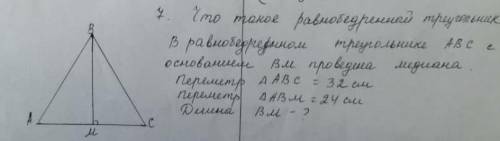 7. Что такое равнобедренный треугольник
В равнобедренном треугольнике ABC с
основанием BM проведена медиана.
Периметр ΔABC = 32 см
Периметр ΔABM = 24 см
Длина BM - ?
B
A
M
C